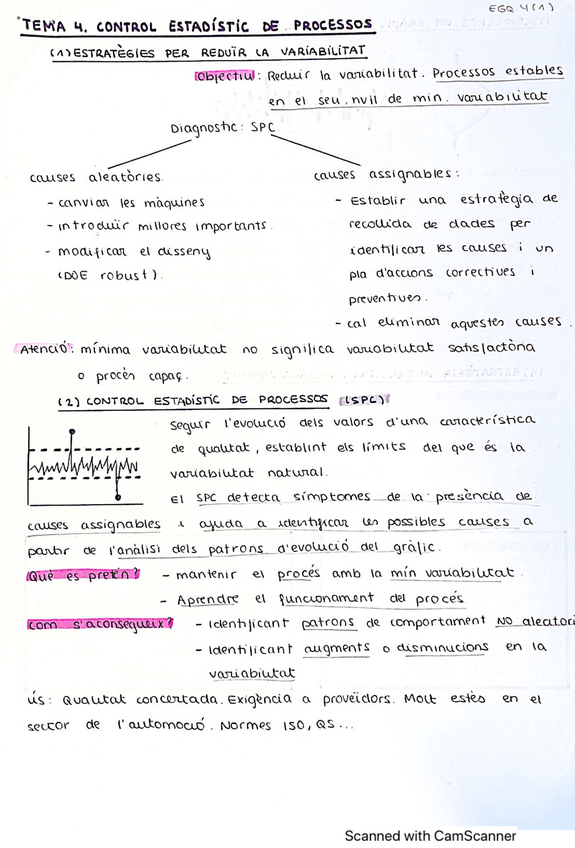 EGQ 4(1)
TEMA 4. CONTROL ESTADÍSTIC DE PROCESSOS
(1) ESTRATÈGIES PER REDUÏR LA VARIABILITAT
Objectiu: Reduir la variabilitat. Processos estables
en el seu nvll de min. variabilitat
Diagnostic: SPC
causes aleatòries.
- canviar les màquines
- introduir millores importants.
- modificar el disseny
(DOE robust).
causes assignables:
- Establir una estratègia de
recollida de dades per
identificar les causes i un
pla d'accions correctives i
preventives.
- cal eliminar aquestes causes.
Atenció: mínima variabilitat no significa variabilitat satisfactòria
o procés capaç.
(2) CONTROL ESTADÍSTIC DE PROCESSOS (SPC)
Seguir l'evolució dels valors d'una característica
de qualitat, establint els límits del que és la
variabilitat natural.
El SPC detecta símptomes de la presència de
causes assignables i ajuda a identificar les possibles causes a
partir de l'anàlisi dels patrons d'evolució del gràfic.
Què es pretén? - mantenir el procés amb la mín variabilitat.
- Aprendre el funcionament del procés
Com s'aconsegueix? - Identificant patrons de comportament NO aleatori
- Identificant augments o disminucions en la
variabilitat
ús: Qualitat concertada. Exigència a proveïdors. Molt estès en el
sector de l'automoció. Normes ISO, QS...
Scanned with CamScanner